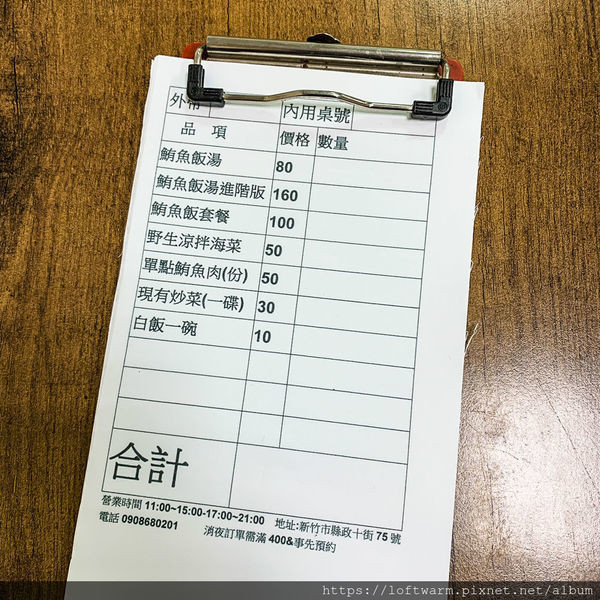 外帶 內用桌號
品 項 價格 數量
鮪魚飯湯 80
鮪魚飯湯進階版 160
鮪魚飯套餐 100
野生涼拌海菜 50
單點鮪魚肉(份) 50
現有炒菜(一碟) 30
白飯一碗 10
合計
營業時間 11:00~15:00-17:00~21:00 地址:新竹市縣政十街 75 號
電話 0908680201 消夜訂單需滿 400&事先預約
https://loftwarm.pixnet.net/album